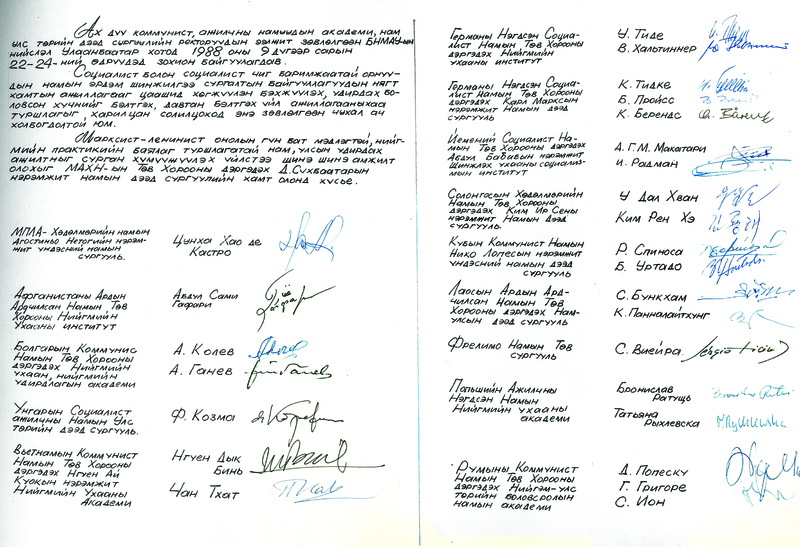 Ах дүү коммунист, ажилчны намуудын академи, нам
улс төрийн дээд сургуулийн ректоруудын ээлжит зөвлөлгөөн БНМАУ-ын
нийслэл Улаанбаатар хотод 1988 оны 9 дүгээр сарын
22-24-ний өдрүүдэд зохион байгуулагдав.
Социалист болон социалист чиг баримжаатай орнуу-
дын намын эрдэм шинжилгээ сургалтын байгууллагуудын нягт
хамтын ажиллагааг цаашид хөгжүүлэн бэхжүүлэх, удирдах бо-
ловсон хүчнийг бэлтгэх, давтан бэлтгэх үйл ажиллагааныхаа
туршлагыг, харилцан солилцоход энэ зөвлөлгөөн чухал ач
холбогдолтой юм.
Марксист-ленинист онолын гүн бат мэдлэгтэй, нийг-
мийн практикийн баялаг туршлагатай нам, улсын удирдах
ажилтныг сурган хүмүүжүүлэх үйлстээ шинэ шинэ амжилт
олохыг МАХН-ын Төв Хорооны дэргэдэх Д.Сүхбаатарын
нэрэмжит намын дээд сургуулийн хамт олонд хүсье.
МПЛА-Хөдөлмөрийн намын
Агостиньо Нетогийн нэрэм-
жит үндэсний намын
сургууль.
Цунха Хао де
Кастро
Афганистаны Ардын
Ардчилсан Намын Төв
Хорооны Нийгмийн
Ухааны институт
Абдул Сами
Гафари
Болгарын Коммунис
Намын Төв Хорооны
дэргэдэх Нийгмийн
ухаан, нийгмийн
удирдлагын академи
А. Колев
А. Ганев
Унгарын Социалист
ажилчны Намын Улс
төрийн дээд сургууль.
Ф. Козма
Вьетнамын Коммунист
Намын Төв Хорооны
дэргэдэх Нгуен Ай
Куокын нэрэмжит
Нийгмийн Ухааны
Академи
Нгуен Дык
Бинь
Чан Тхат
Германы Нэгдсэн Социа-
лист Намын Төв Хорооны
дэргэдэх Нийгмийн
ухааны институт
У. Тиде
В. Хальтиннер
Германы Нэгдсэн Социа-
лист Намын Төв Хорооны
дэргэдэх Карл Марксын
нэрэмжит Намын дээд
сургууль
К. Тидке
Б. Пройсс
К. Берендс
Йемений Социалист На-
мын Төв Хорооны дэргэдэх
Абдул Бабибын нэрэмжит
Шинжлэх ухааны социализ-
мын институт
А.Г.М. Макатари
И. Радман
Солонгосын Хөдөлмөрийн
Намын Төв Хорооны
дэргэдэх Ким Ир Сены
нэрэмжит Намын дээд
сургууль
У Дал Хван
Ким Рен Хэ
Кубын Коммунист Намын
Нико Лопесын нэрэмжит
үндэсний намын дээд
сургууль
Р. Спиноса
Б. Уртадо
Лаосын Ардын Ард-
чилсан Намын Төв
Хорооны дэргэдэх Нам-
улсын дээд сургууль
С. Бункхам
К. Панналайтхунг
Фрелимо Намын Төв
сургууль
С. Виейра.
Польшийн Ажилчны
Нэгдсэн Намын
Нийгмийн ухааны
академи
Бронислав
Ратущь
Татьяна
Рыхлевска
Румыны Коммунист
Намын Төв Хорооны
дэргэдэх Нийгэм-улс
төрийн боловсролын
намын академи
Д. Попеску
Г. Григоре
С. Ион